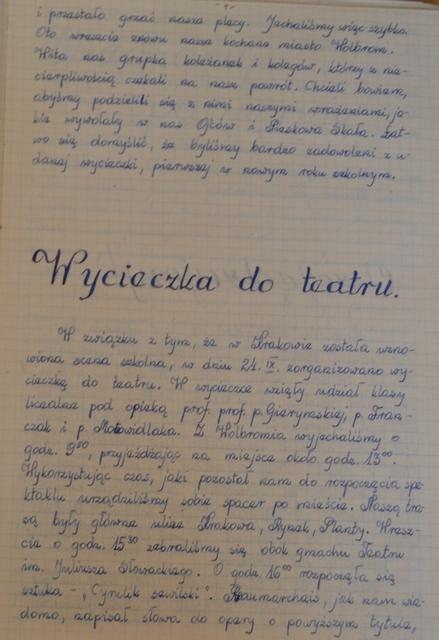 i przestało grzać nasze plecy. Jechaliśmy więc szybko.
Oto wreszcie znowu nasze kochane miasto Wolbrom.
Wita nas grupka koleżanek i kolegów, którzy z nie-
cierpliwością czekali na nasz powrót. Chcieli bowiem,
abyśmy podzielili się z nimi naszymi wrażeniami, ja-
kie wywołały w nas Ojców i Pieskowa Skała. Łat-
wo się domyślić, że byliśmy bardzo zadowoleni z u-
danej wycieczki, pierwszej w nowym roku szkolnym.
Wycieczka do teatru.
W związku z tym, że w Krakowie została wzno-
wiona scena szkolna, w dniu 24. IX. zorganizowano wy-
cieczkę do teatru. W wycieczce wzięły udział klasy
licealne pod opieką prof. prof. p. Gierymskiej, p. Fran-
czak i p. Motowidlaka. Z Wolbromia wyjechaliśmy o
godz. 9⁵⁰, przyjeżdżając na miejsce około godz. 13⁰⁰.
Wykorzystując czas, jaki pozostał nam do rozpoczęcia spe-
ktaklu urządziliśmy sobie spacer po mieście. Naszą tra-
są były główne ulice Krakowa, Rynek, Planty. Wresz-
cie o godz. 15³⁰ zebraliśmy się obok gmachu Teatru
im. Juliusza Słowackiego. O godz. 16⁰⁰ rozpoczęła się
sztuka - „Cyrulik sewilski". Beaumarchais, jak nam wia-
domo, napisał słowa do opery o powyższym tytule,